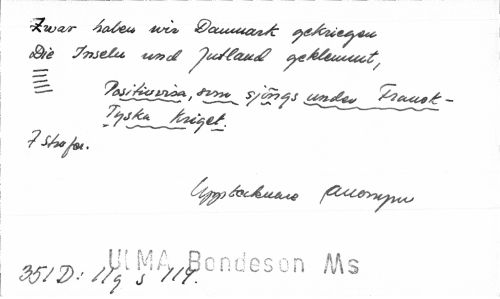 Zwar haben wir Danmark gekriegen
Die Inseln und Jutland geklemmt,
Positivvisa, som sjöngs under Fransk-
Tyska kriget.
7 strofer.
Upptecknare Anonym
ULMA Bondeson Ms
351 D: 11q s 119.